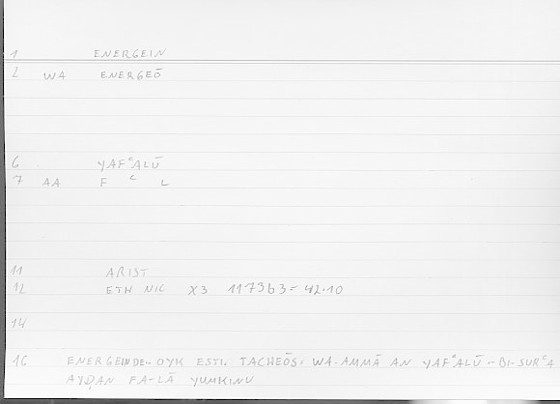 1 ENERGEIN
2 WA ENERGEŌ
6 YAFᶜALŪ
7 AA F ᶜ L
11 ARIST
12 ETH NIC X3 1173b3 = 42.10
14
16 ENERGEIN DE- OYK ESTI. TACHEŌS = WA-AMMĀ AN YAFᶜALŪ -- BI-SURᶜA
AYḌAN FA-LĀ YUMKINU